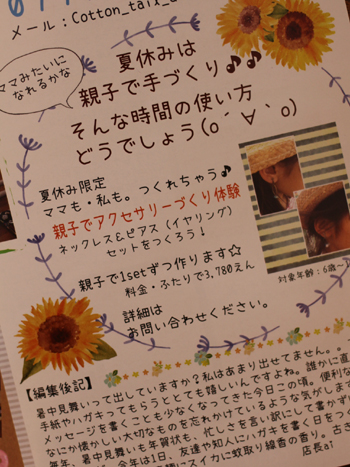 メール：Cotton_taix_a
ママみたいに
なれるかな
夏休みは
親子で手づくり♪♪
そんな時間の使い方
どうでしょう(o´∀｀o)
夏休み限定
ママも・私も。つくれちゃう♪
親子でアクセサリーづくり体験
ネックレス&ピアス（イヤリング）
セットをつくろう！
親子で1setずつ作ります☆
料金・ふたりで3,780えん
対象年齢：6歳〜
詳細は
お問い合わせください。
【編集後記】
暑中見舞いって出していますか？私はあまり出せてません。
手紙やハガキってもらうととても嬉しいんですよね。誰かに直
メッセージを書くことも少なくなってきた今日この頃。便利な
なにか懐かしい大切なものを忘れかけているような気がしま
暑中見舞いも年賀状も、忙しさを言い訳にして書かず
今年は1日、友達や知人にハガキを書く日をつく
スイカに蚊取り線香の香り。
店長